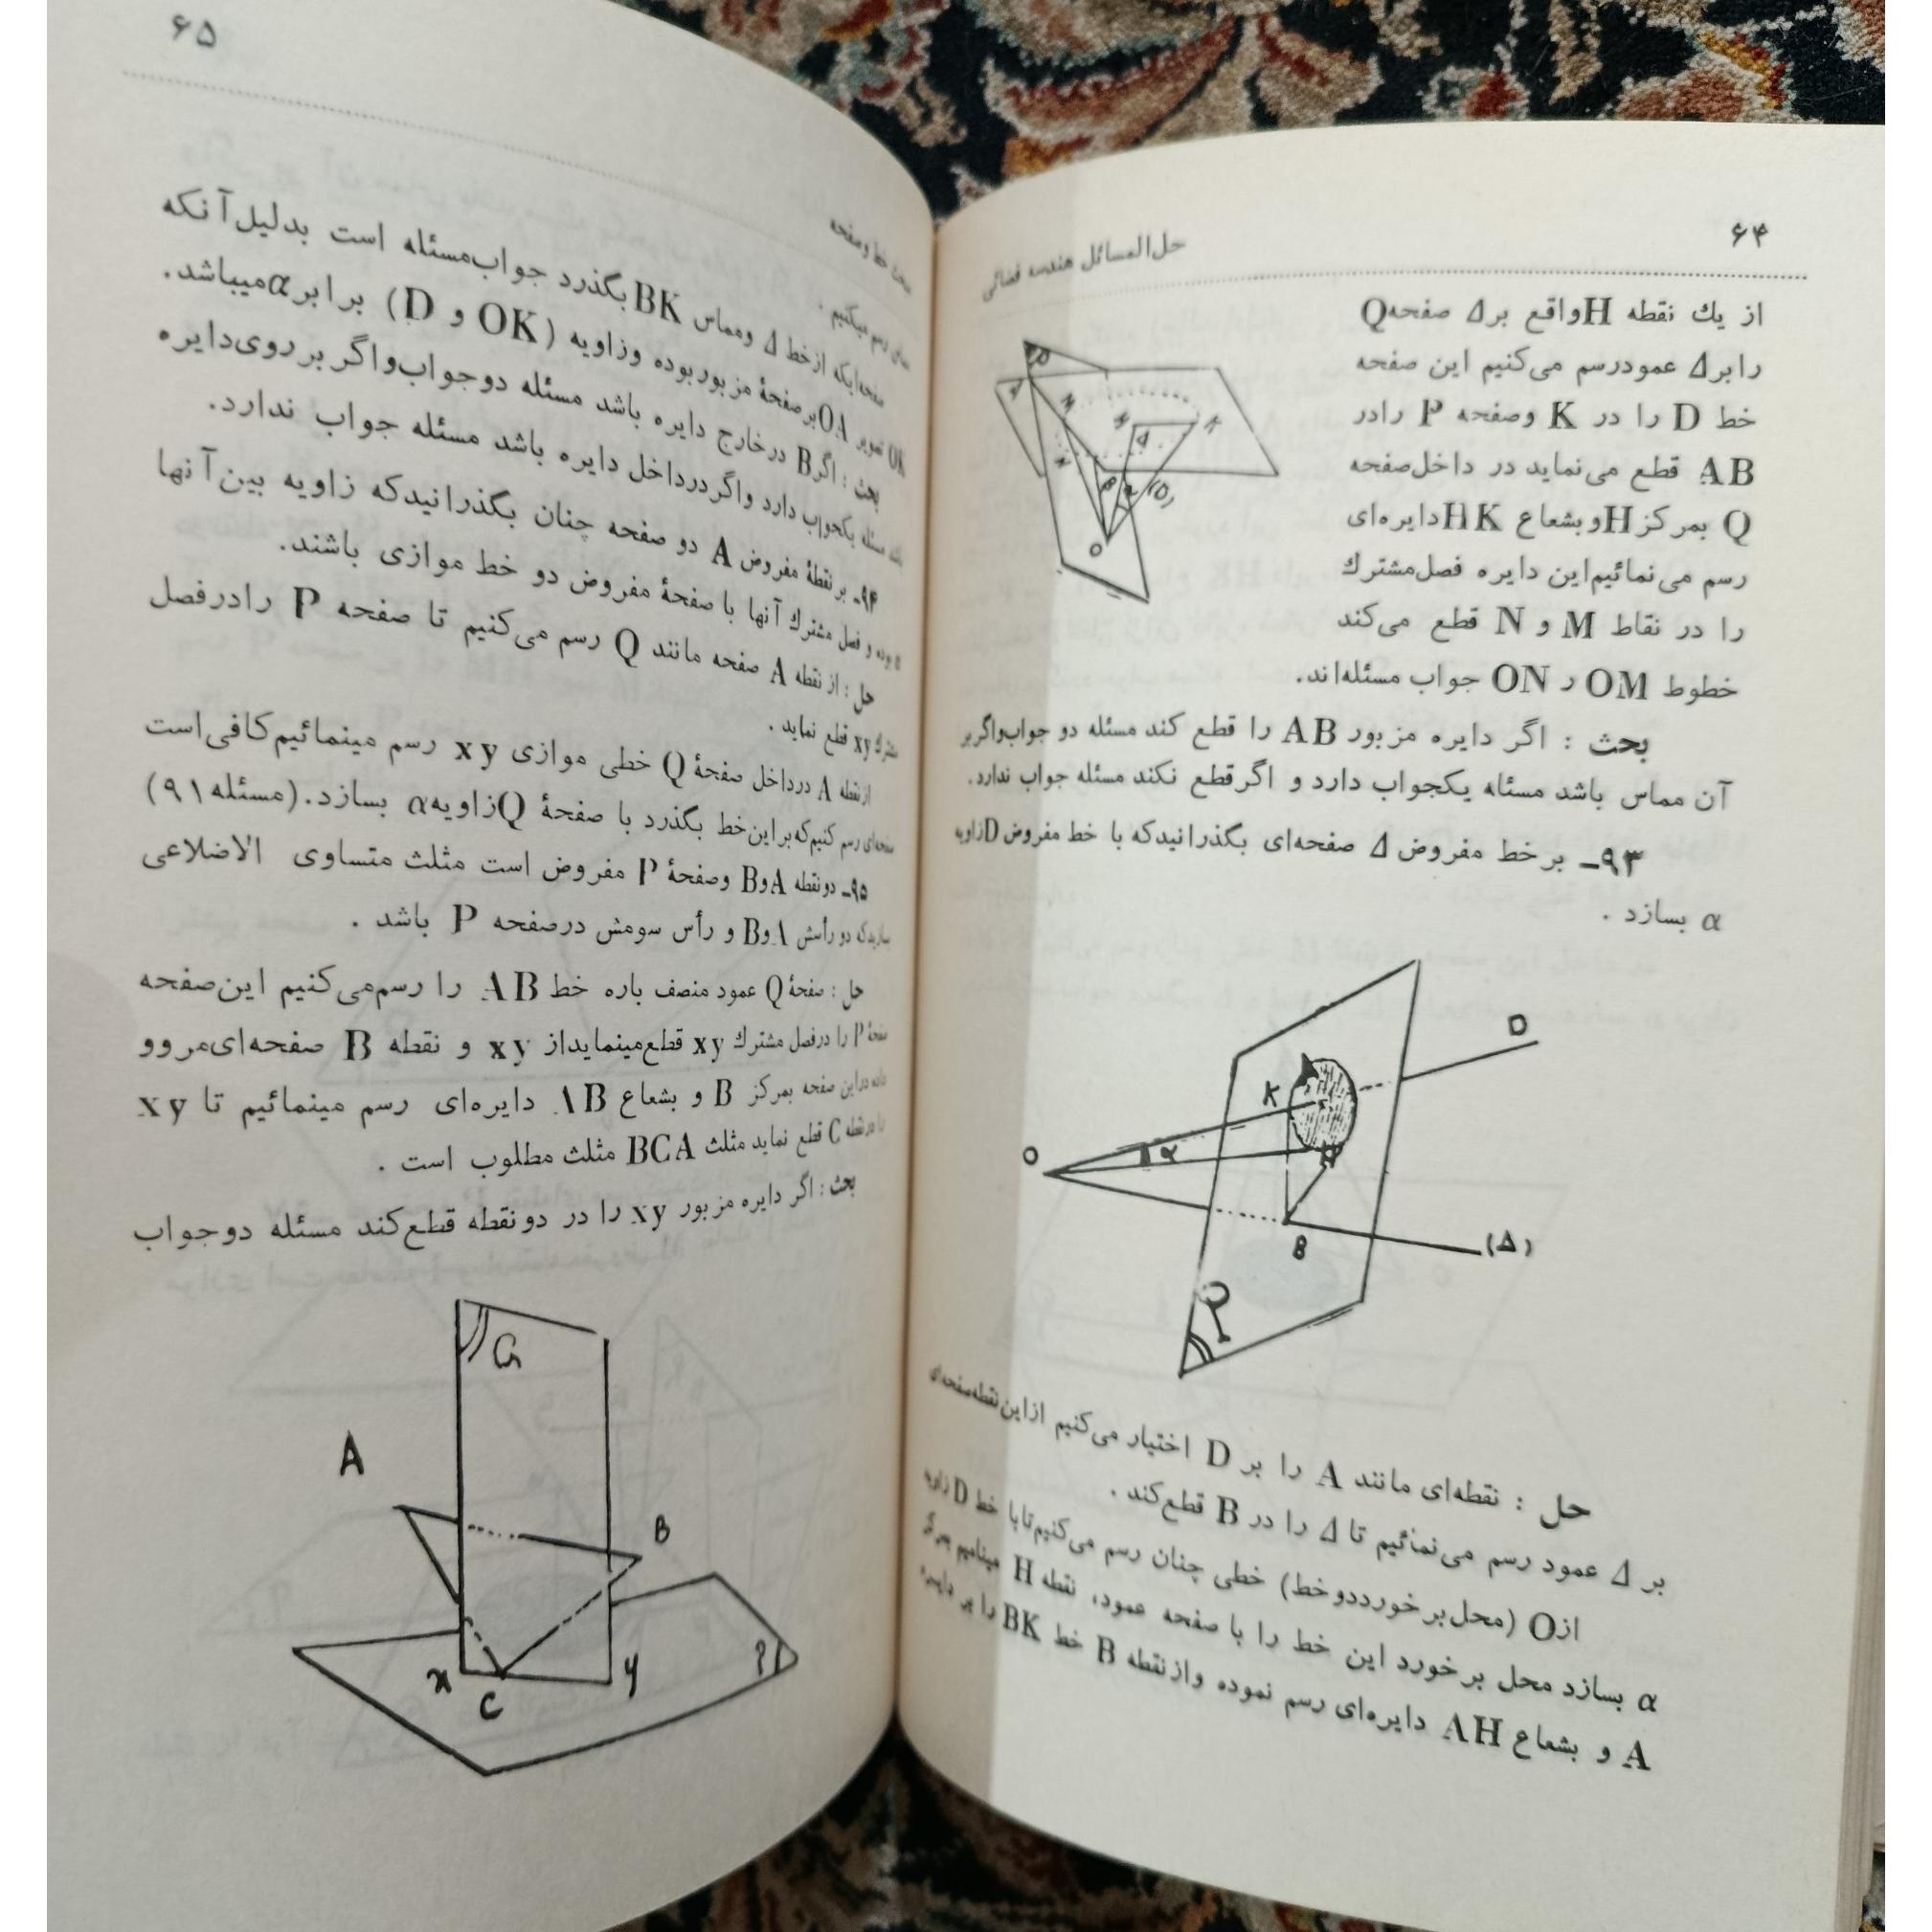 ۶۴
حل‌المسائل هندسه فضائی
از یك نقطه H واقع بر Δ صفحه Q
را بر Δ عمود رسم می‌کنیم این صفحه
خط D را در K و صفحه P را در
AB قطع می‌نماید در داخل صفحه
Q بمرکز H و بشعاع HK دایره‌ای
رسم می‌نمائیم این دایره فصل مشترك
را در نقاط M و N قطع می‌کند
خطوط OM ر ON جواب مسئله‌اند.
بحث : اگر دایره مزبور AB را قطع کند مسئله دو جواب واگر بر
آن مماس باشد مسئاه یکجواب دارد و اگر قطع نکند مسئله جواب ندارد.
۹۳ـ بر خط مفروض Δ صفحه‌ای بگذرانید که با خط مفروض D زاویه
α بسازد .
D
K
O
α
H
B
(Δ)
Q
حل : نقطه‌ای مانند A را بر D اختیار می‌کنیم از این نقطه صفحه‌ای
بر Δ عمود رسم می‌نمائیم تا Δ را در B قطع کند .
از O (محل برخورد دو خط) خطی چنان رسم می‌کنیم تا با خط D زاویه
α بسازد محل برخورد این خط را با صفحه عمود، نقطه H مینامیم بمرکز
A و بشعاع AH دایره‌ای رسم نموده واز نقطه B خط BK را بر دایره
۶۵
مبحث خط وصفحه
مماس رسم میکنیم .
صفحه‌ایکه از خط Δ ومماس BK بگذرد جواب مسئله است بدلیل آنکه
OK تصویر OA بر صفحهٔ مزبور بوده وزاویه (OK و D) برابر α میباشد.
بحث : اگر B در خارج دایره باشد مسئله دو جواب واگر بر روی دایره
باشد مسئله یکجواب دارد واگر در داخل دایره باشد مسئله جواب ندارد.
۹۴ـ بر نقطهٔ مفروض A دو صفحه چنان بگذرانید که زاویه بین آنها
α بوده و فصل مشترك آنها با صفحهٔ مفروض دو خط موازی باشند.
حل : از نقطه A صفحه مانند Q رسم می‌کنیم تا صفحه P را در فصل
مشترك xy قطع نماید .
از نقطه A در داخل صفحهٔ Q خطی موازی xy رسم مینمائیم کافی است
صفحه‌ای رسم کنیم که بر این خط بگذرد با صفحهٔ Q زاویه α بسازد. (مسئله ۹۱)
۹۵ـ دو نقطه A و B وصفحهٔ P مفروض است مثلث متساوی الاضلاعی
بسازید که دو رأسش A و B و رأس سومش در صفحه P باشد .
حل : صفحهٔ Q عمود منصف پاره خط AB را رسم می‌کنیم این صفحه
صفحهٔ P را در فصل مشترك xy قطع مینماید از xy و نقطه B صفحه‌ای مرور
داده در این صفحه بمرکز B و بشعاع AB دایره‌ای رسم مینمائیم تا xy
را در نقطه C قطع نماید مثلث BCA مثلث مطلوب است .
بحث : اگر دایره مزبور xy را در دو نقطه قطع کند مسئله دو جواب
A
B
x
C
y
P